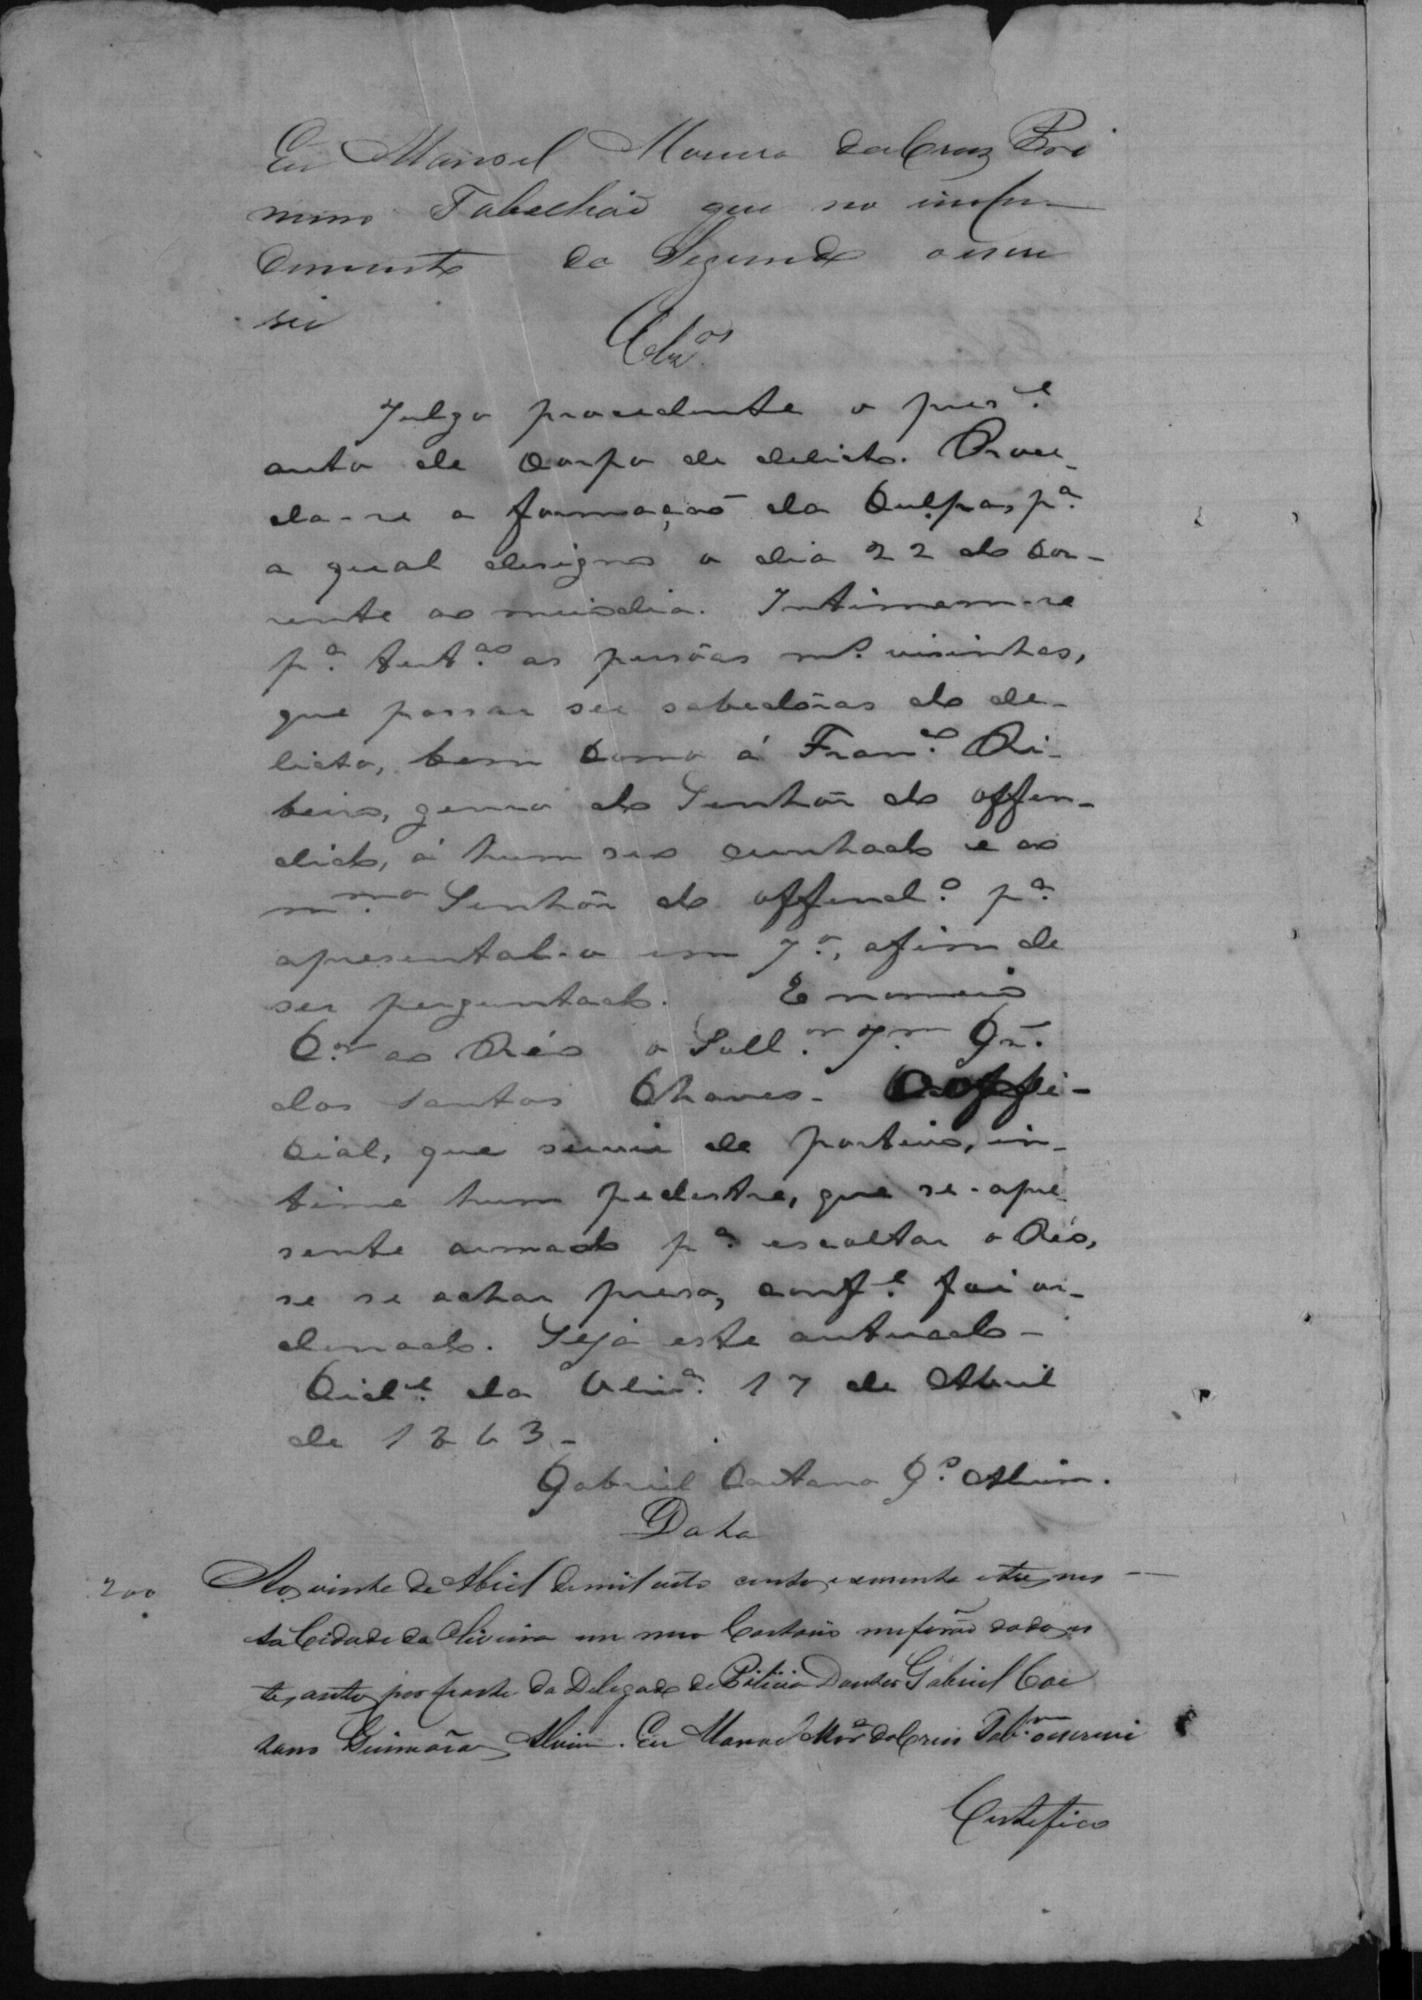 Eu Manoel Moreira da Cruz Pri
meiro Tabellião que no impe-
dimento do Segundo o escre
vi
Clz.os
Julgo procedente o pres.e
auto de Corpo de delicto. Proce-
da-se a formação da Culpa, p.a
a qual designo o dia 22 do cor-
rente ao meiodia. Intimem-se
p.a test.as as pessôas m.s visinhas,
que possão ser sabedôras do de-
licto, bem como á Fran.co Ri-
beiro, genro do Senhôr do offen-
dido, á hum seo cunhado e ao
m.mo Senhôr do offend.o p.a
apresental-o em J.o, afim de
ser perguntado. E nomeio
C.or ao Réo o Soll.or J.m G.s
dos Santos Chaves. O offi-
cial, que servir de porteiro, in-
time hum pedestre, que se-apre
sente armado p.a escoltar o Réo,
se se achar preso, conf.e foi or-
denado. Seja este autuado -
Cid.e da Oliv.a 17 de Abril
de 1863 -
Gabriel Caetano G.s Alvim.
Data
200
Aos vinte de Abril de mil oito centos e secenta e tres nes
ta Cidade da Oliveira em meo Cartorio me forão dados es
tes autos por parte do Delegado de Policia Doutor Gabriel Cae
tano Guimarães Alvim. Eu Manoel Mor.a da Cruz Tab.m o escrevi
Certefico